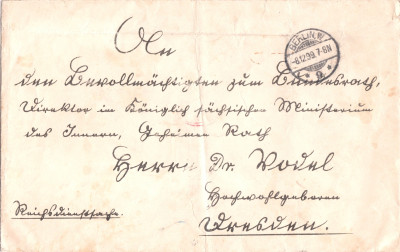 An
BERLIN W.
-8.12.99.7-8N.
den Bevollmächtigten zum Bundesrath,
Direktor im Königlich sächsischen Ministerium
des Innern, Geheimen Rath
Herrn Dr. Vodel
Hochwohlgeboren
Reichsdienstsache.
Dresden.